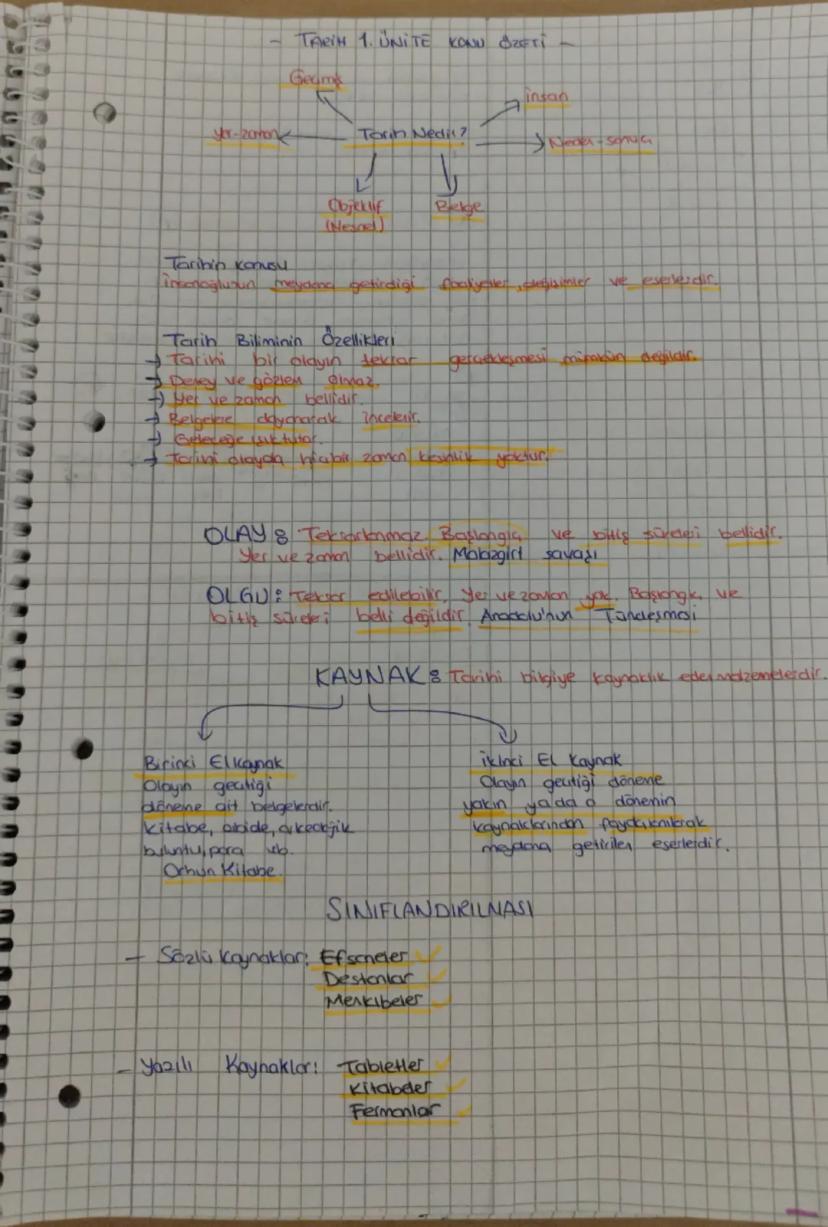 - TARİH 1. ÜNİTE KONU ÖZETİ -
Geçmiş
İnsan
Yer-zaman
Tarih Nedir?
Neden-sonuç
Objektif
(Nesnel)
Belge
Tarihin konusu
İnsanoğlunun meydana getirdiği faaliyetler, değişimler ve eserlerdir.
Tarih Biliminin Özellikleri
→ Tarihi bir olayın tekrar gerçekleşmesi mümkün değildir.
→ Deney ve gözlem olmaz.
→ Yer ve zaman bellidir.
→ Belgelere dayanarak incelenir.
→ Geleceğe ışık tutar.
→ Tarihi olayda hiçbir zaman kesinlik yoktur.
OLAY: Tekrarlanmaz. Başlangıç ve bitiş süreleri bellidir.
Yer ve zaman bellidir. Malazgirt savaşı
OLGU: Tekrar edilebilir, Yer ve zaman yok. Başlangıç ve
bitiş süreleri belli değildir. Anadolu'nun Türkleşmesi
KAYNAK: Tarihi bilgiye kaynaklık eden malzemelerdir.
Birinci El Kaynak
Olayın geçtiği
döneme ait belgelerdir.
Kitabe, abide, arkeolojik
buluntu, para vb.
Orhun Kitabe.
İkinci El Kaynak
Olayın geçtiği döneme
yakın ya da o dönemin
kaynaklarından faydalanılarak
meydana getirilen eserlerdir.
SINIFLANDIRILMASI
- Sözlü Kaynaklar: Efsaneler ✓
Destanlar ✓
Menkıbeler ✓
- Yazılı Kaynaklar: Tabletler ✓
Kitabeler ✓
Fermanlar ✓